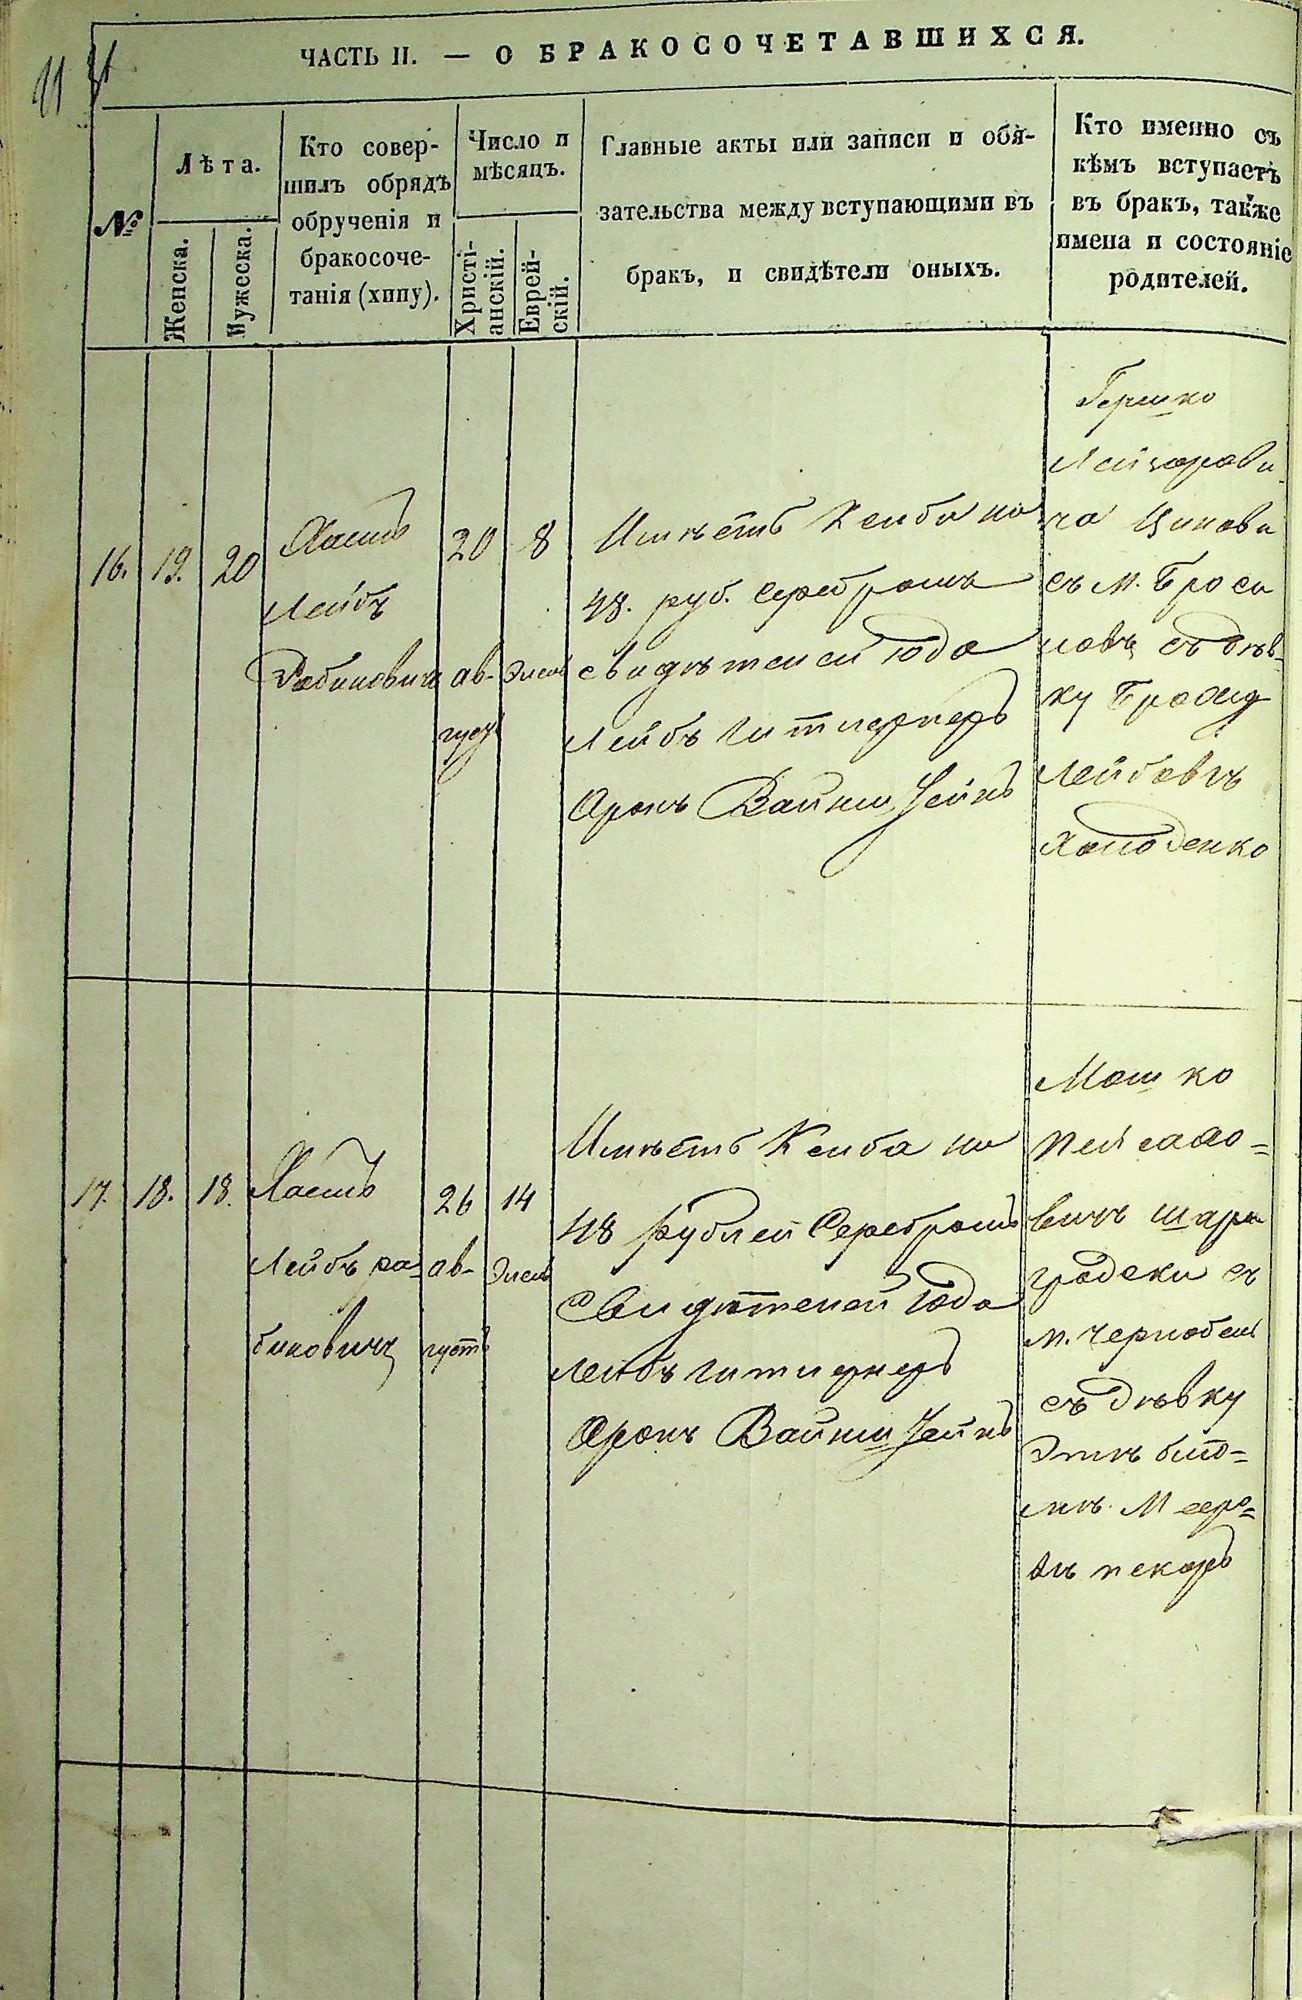 11
ЧАСТЬ II. — О БРАКОСОЧЕТАВШИХСЯ.
№
Лѣта.
Женска.
Мужеска.
Кто совер-
шилъ обрядъ
обрученія и
бракосоче-
танія (хипу).
Число и
мѣсяцъ.
Христі-
анскій.
Еврей-
скій.
Главные акты или записи и обя-
зательства между вступающими въ
бракъ, и свидѣтели оныхъ.
Кто именно съ
кѣмъ вступаетъ
въ бракъ, также
имена и состояніе
родителей.
16.
19.
20
Лейбъ
Рабиновичъ
20
ав-
густ
8
Элель
Имѣетъ Ксиба на
48. руб. серебромъ
свидѣтелей Юда
Лейбъ
Аронъ Вайнштейнъ
Гершко
Лейзорови
ча
съ м. Броси
ловъ съ дѣв-
ку Броху
Лейбовъ
Холоденко
17.
18.
18.
Лейбъ ра-
биновичъ
26
ав-
густъ
14
Элель
Имѣетъ Ксиба на
48 рублей Серебромъ
Свидѣтелей Юда
Лейбъ
Аронъ Вайнштейнъ
Мошко
Пейсахо=
вичъ Шара
градски съ
м. Чернобель
съ дѣвку
Мееро=
въ пекаръ